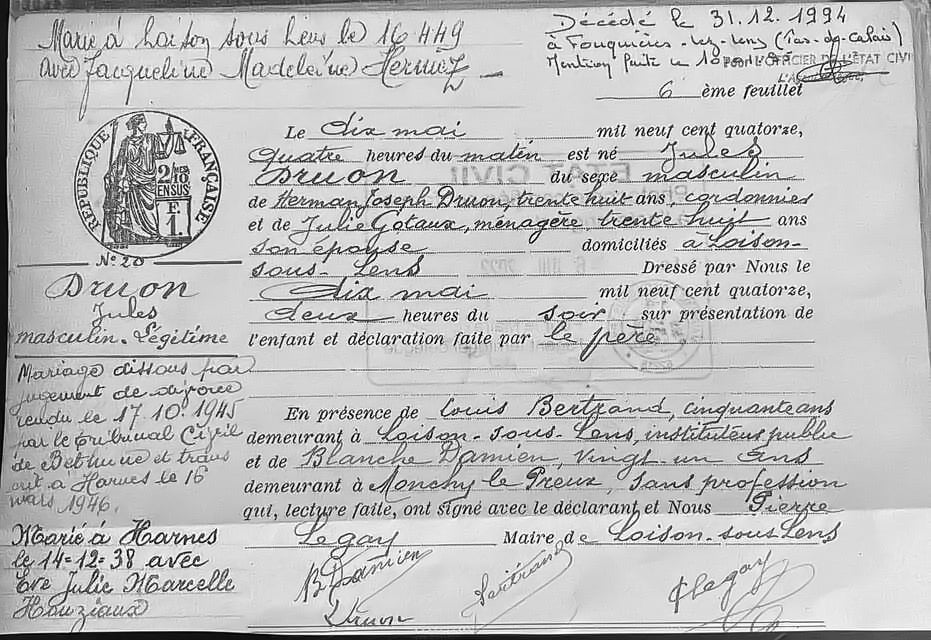 Marié à Loison sous Lens le 16 4 49
avec Jacqueline Madeleine Herniez
Décédé le 31.12.1994
à Fouquières-lez-Lens (Pas-de-Calais)
Mention faite le
POUR L'OFFICIER DE L'ÉTAT CIVIL
6 ème feuillet
RÉPUBLIQUE FRANÇAISE
2/10
EN SUS
F.
1.
Le dix mai mil neuf cent quatorze,
quatre heures du matin est né Jules
Druon du sexe masculin
de Herman Joseph Druon, trente huit ans, cordonnier
et de Julie Gotaux, ménagère, trente huit ans
son épouse domiciliés à Loison-
sous-Lens Dressé par Nous le
dix mai mil neuf cent quatorze,
deux heures du soir sur présentation de
l'enfant et déclaration faite par le père
En présence de Louis Bertrand, cinquante ans
demeurant à Loison-sous-Lens, instituteur public
et de Blanche Damien, vingt-un ans
demeurant à Monchy le Preux, sans profession
qui, lecture faite, ont signé avec le déclarant et Nous Pierre
Legay Maire de Loison-sous Lens
B Damien
Bertrand
P Legay
Druon
N° 20
Druon
Jules
masculin. Légitime
Mariage dissous par
jugement de divorce
rendu le 17.10.1945
par le Tribunal Civil
de Béthune et trans
crit à Harnes le 16
mars 1946.
Marié à Harnes
le 14-12-38 avec
Eve Julie Marcelle
Houziaux
ETAT CIVIL